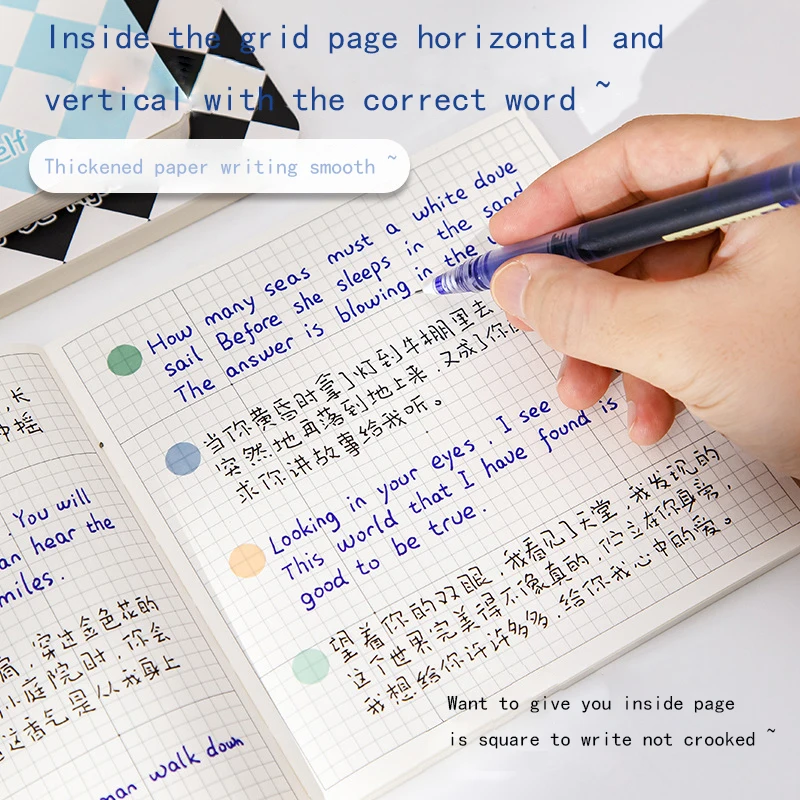 Inside the grid page horizontal and
vertical with the correct word ~
Thickened paper writing smooth ~
elf
How many seas must a white dove
sail Before she sleeps in the sand
The answer is blowing in the
当你黄昏时拿了灯到牛棚里去
突然地再落到地上来，又成了你
求你讲故事给我听。
Looking in your eyes, I see
This world that I have found is
good to be true.
望着你的双眼，我看见了天堂，我发现的
这个世界完美得不像真的，伫立在你身旁，
我想给你许许多多，给你我心中的爱。
长
摇
. You will
an hear the
miles.
穿过金色花的
小庭院时，你会
这香气是从我身上
man walk down
Want to give you inside page
is square to write not crooked ~